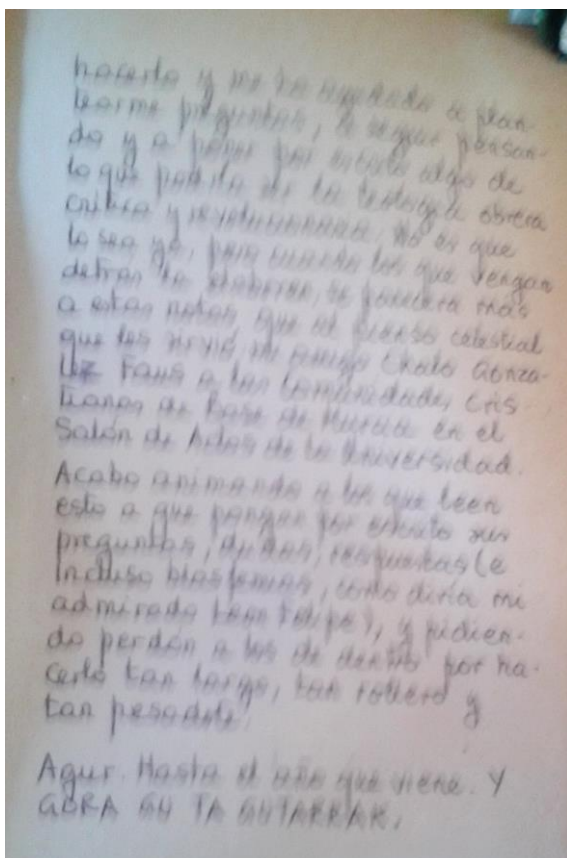 hacerlo y me ha ayudado a plan-
tearme preguntas, a seguir pensan-
do y a poner por escrito algo de
lo que podría ser la teología obrera
crítica y revolucionaria, no es que
lo sea ya, pero cuando los que vengan
detrás la elaboren, se parecerá más
a estas notas, que al pienso celestial
que les sirvió, mi amigo Chalo Gonza-
lez Faus a las Comunidades Cris-
tianas de Base de Murcia en el
Salón de Actos de la Universidad.
Acabo animando a los que leen
esto a que pongan por escrito sus
preguntas, dudas, respuestas (e
incluso blasfemias, como diría mi
admirado León Felipe), y pidien-
do perdón a los de dentro por ha-
cerlo tan largo, tan rollero y
tan pesado.
Agur. Hasta el año que viene. Y
GORA GU TA GUTARRAK.